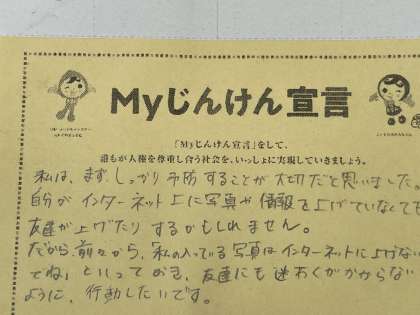 Myじんけん宣言
「Myじんけん宣言」をして、
誰もが人権を尊重し合う社会を、いっしょに実現していきましょう。
私は、まず、しっかり予防することが大切だと思いました。
自分がインターネット上に写真や情報を上げていなくても
友達が上げたりするかもしれません。
だから、前々から、私の入っている写真はインターネットに上げない
でね、といっておき、友達にも迷わくがかからない
ように、行動したいです。